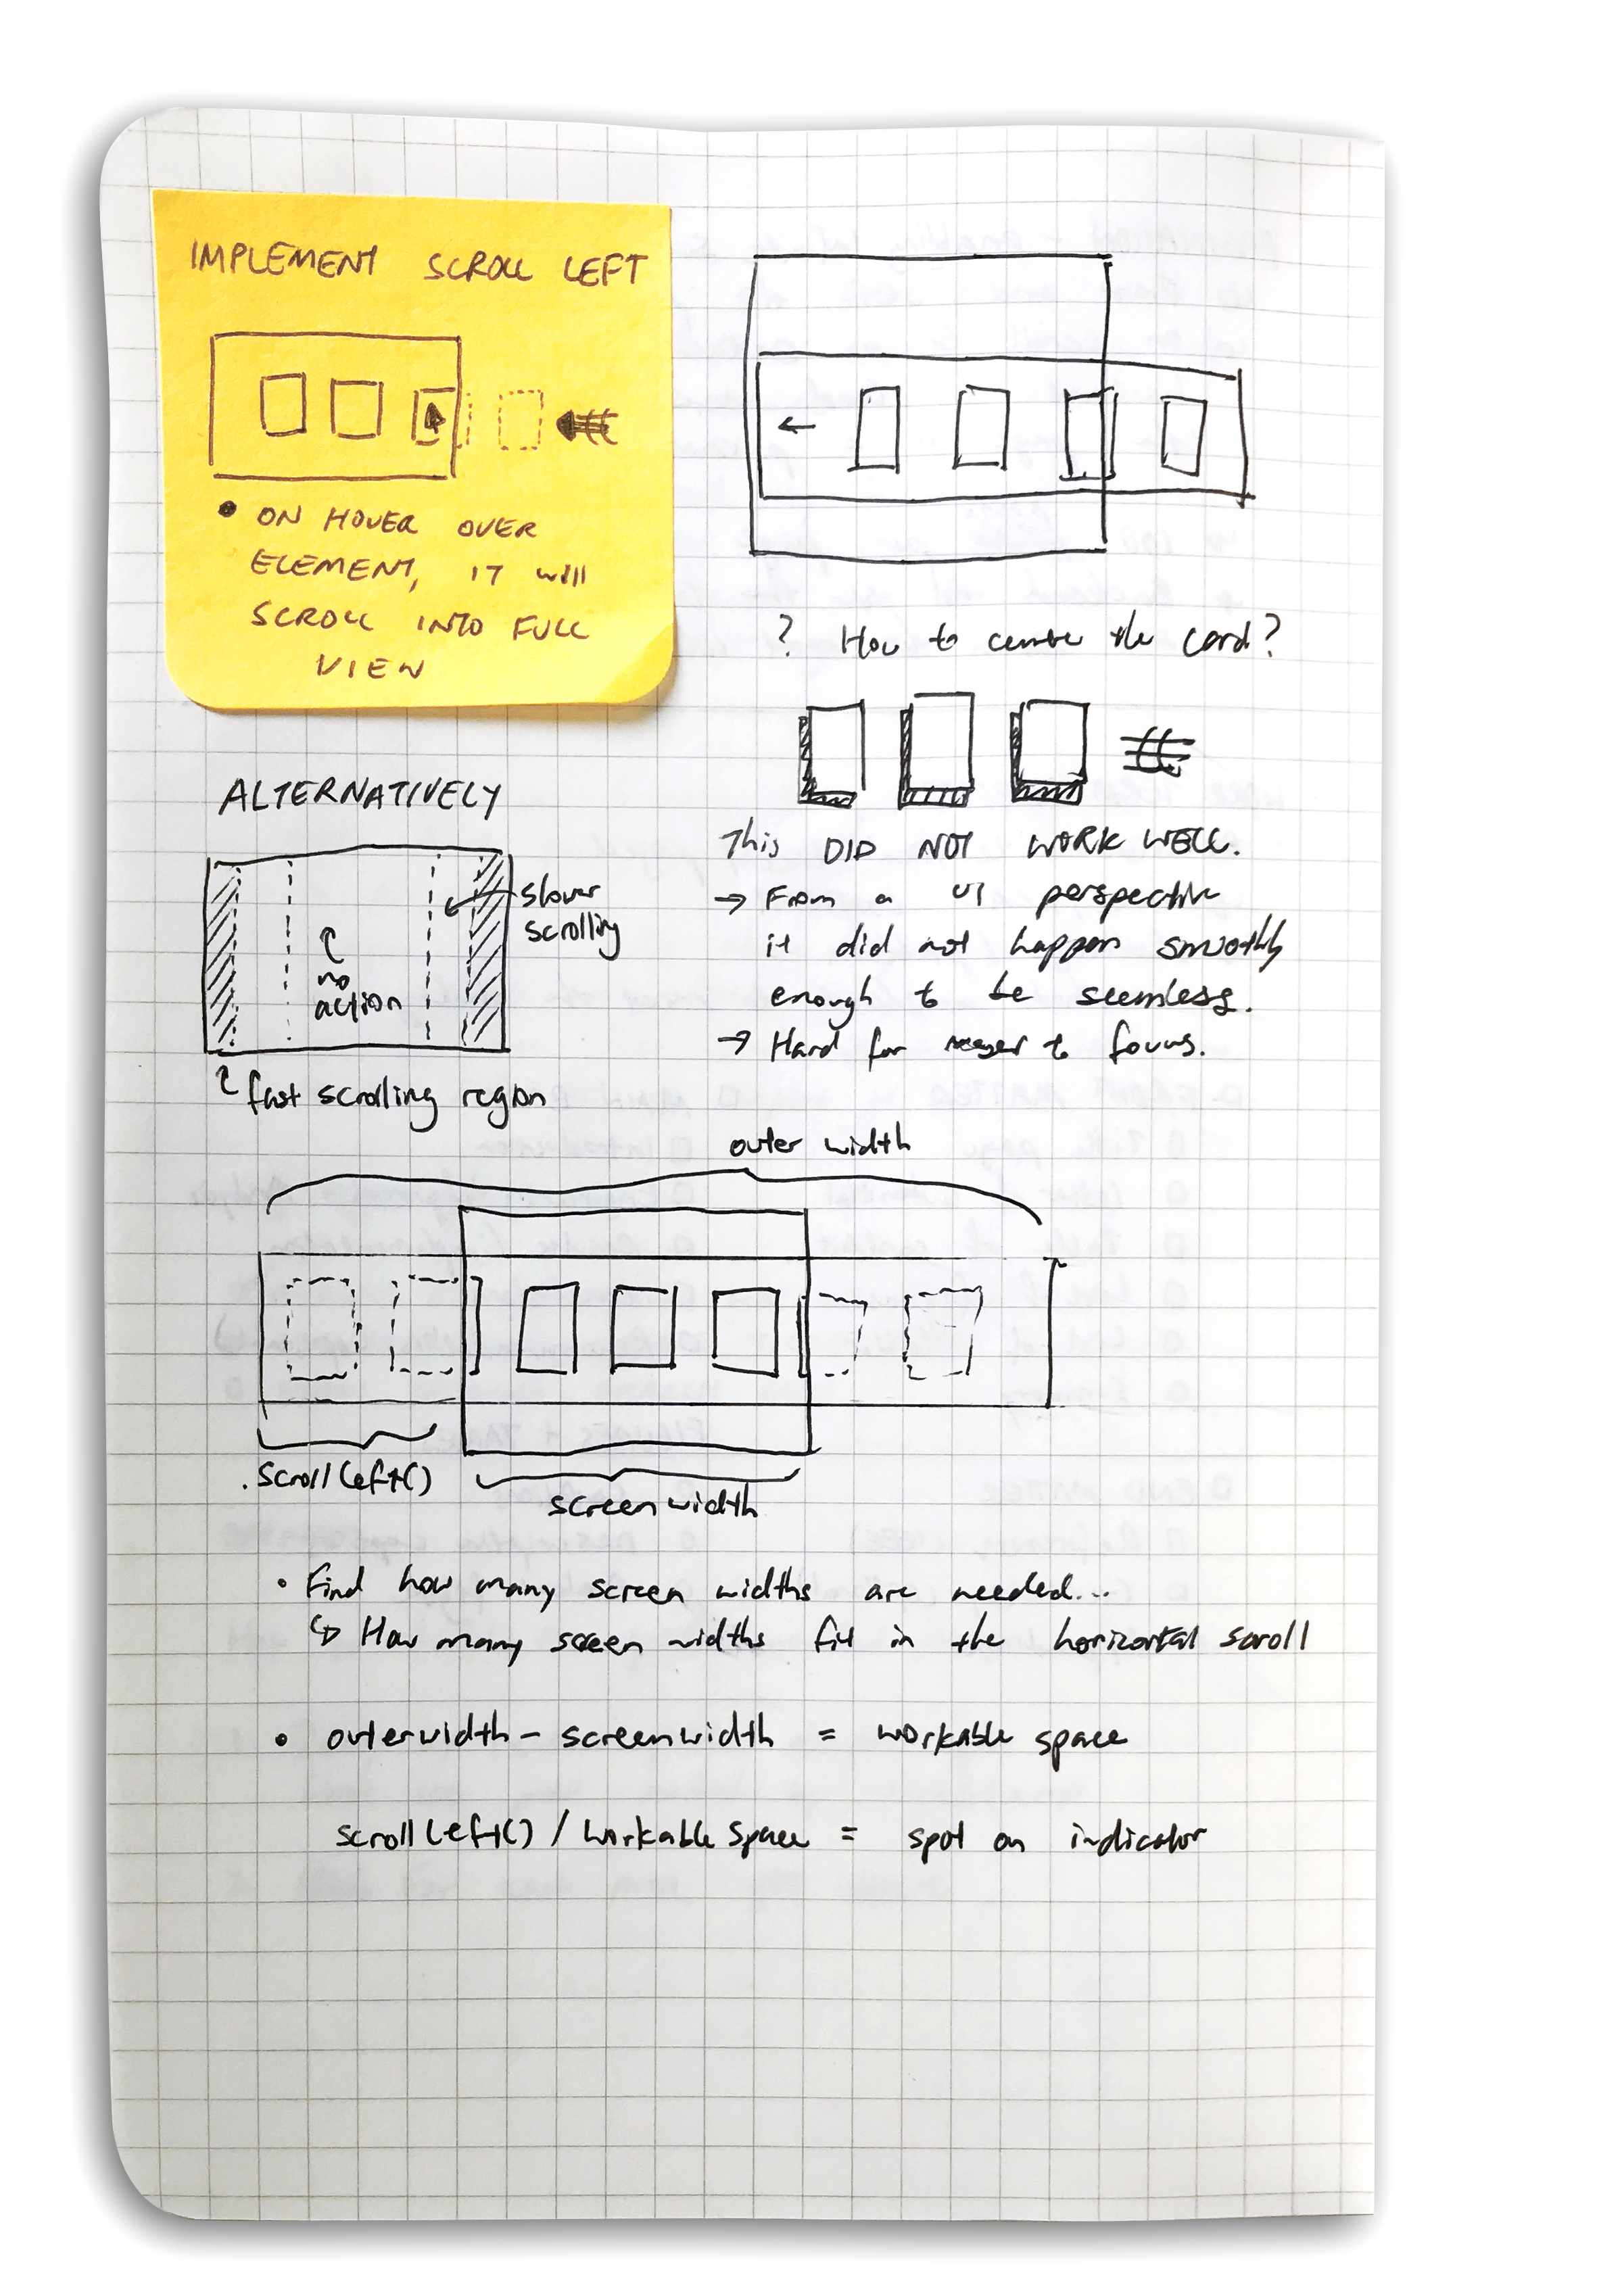 IMPLEMENT SCROLL LEFT
• ON HOVER OVER
ELEMENT, IT will
SCROLL INTO FULL
VIEW
? How to centre the card?
This DID NOT WORK WELL.
→ From a UI perspective
it did not happen smoothly
enough to be seemless.
→ Hard for user to focus.
ALTERNATIVELY
slower
scrolling
no
action
fast scrolling region
outer width
.scrollLeft()
screen width
• Find how many screen widths are needed...
↳ How many screen widths fit in the horizontal scroll
• outerwidth - screenwidth = workable space
scrollLeft() / workable space = spot on indicator